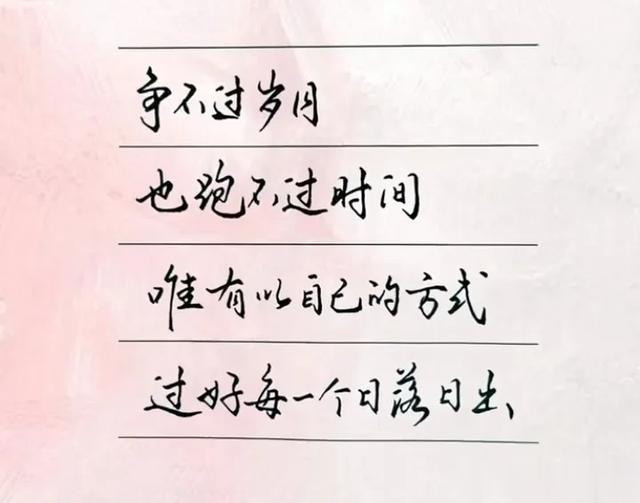 争不过岁月
也跑不过时间
唯有以自己的方式
过好每一个日落日出、